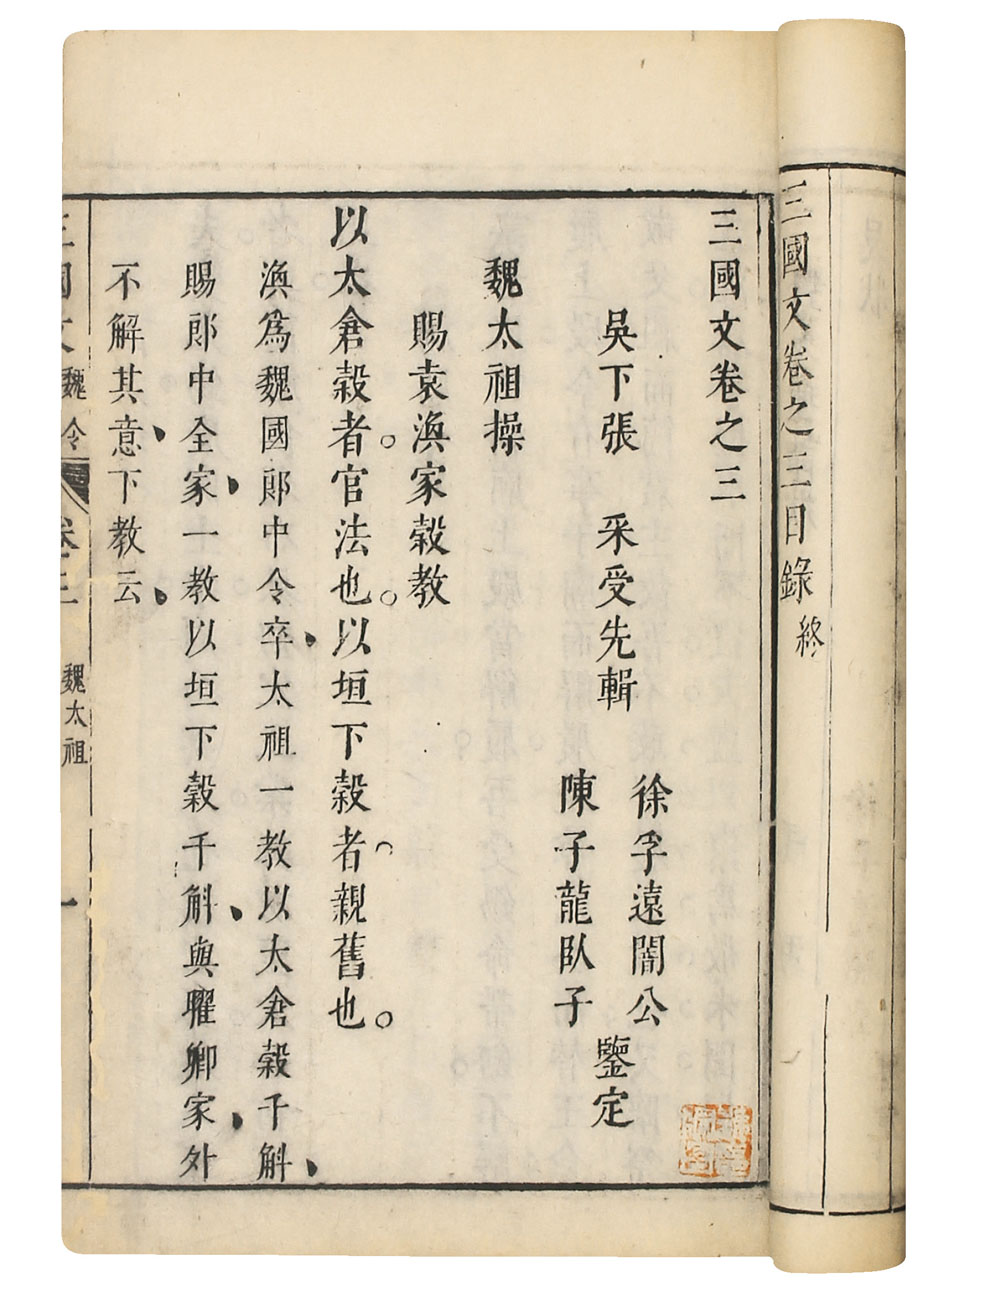 三國文卷之三目錄終
三國文卷之三
徐孚遠闇公
吳下張 采受先輯
鑒定
陳子龍臥子
魏太祖操
賜袁渙家穀教
以太倉穀者官法也以垣下穀者親舊也
渙爲魏國郎中令卒太祖一教以太倉穀千斛
賜郎中全家一教以垣下穀千斛與曜卿家外
不解其意下教云
三國文 魏令 卷三 魏太祖 一